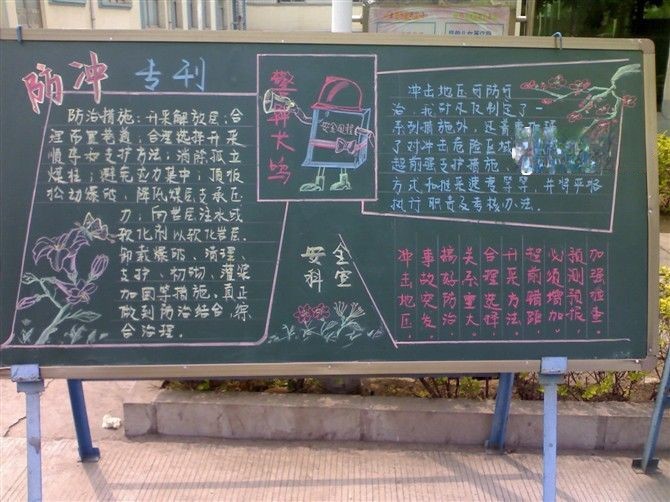 防冲 专刊
防治措施：开采解放层；合
理布置巷道；合理选择开采
顺序和支护方法；消除孤立
煤柱；避免应力集中；顶板
松动爆破，降低煤层支承压
力；向岩层注水或
软化剂以软化岩层、
卸载爆破、清理、
支护、初砌、灌浆
加固等措施，真正
做到防治结合，综
合治理。
警钟大鸣
安全
科室
冲击地压可防可
治，我矿及制定了一
系列措施外，还
了对冲击危险区域
超前强支护措施、
方式和推采速度等等，并将严格
执行职责及考核办法.
冲击地压，
事故突发，
搞好防治，
关系重大，
合理选择，
开采方法，
前错距，
必须增加，
预测预报，
加强检查。